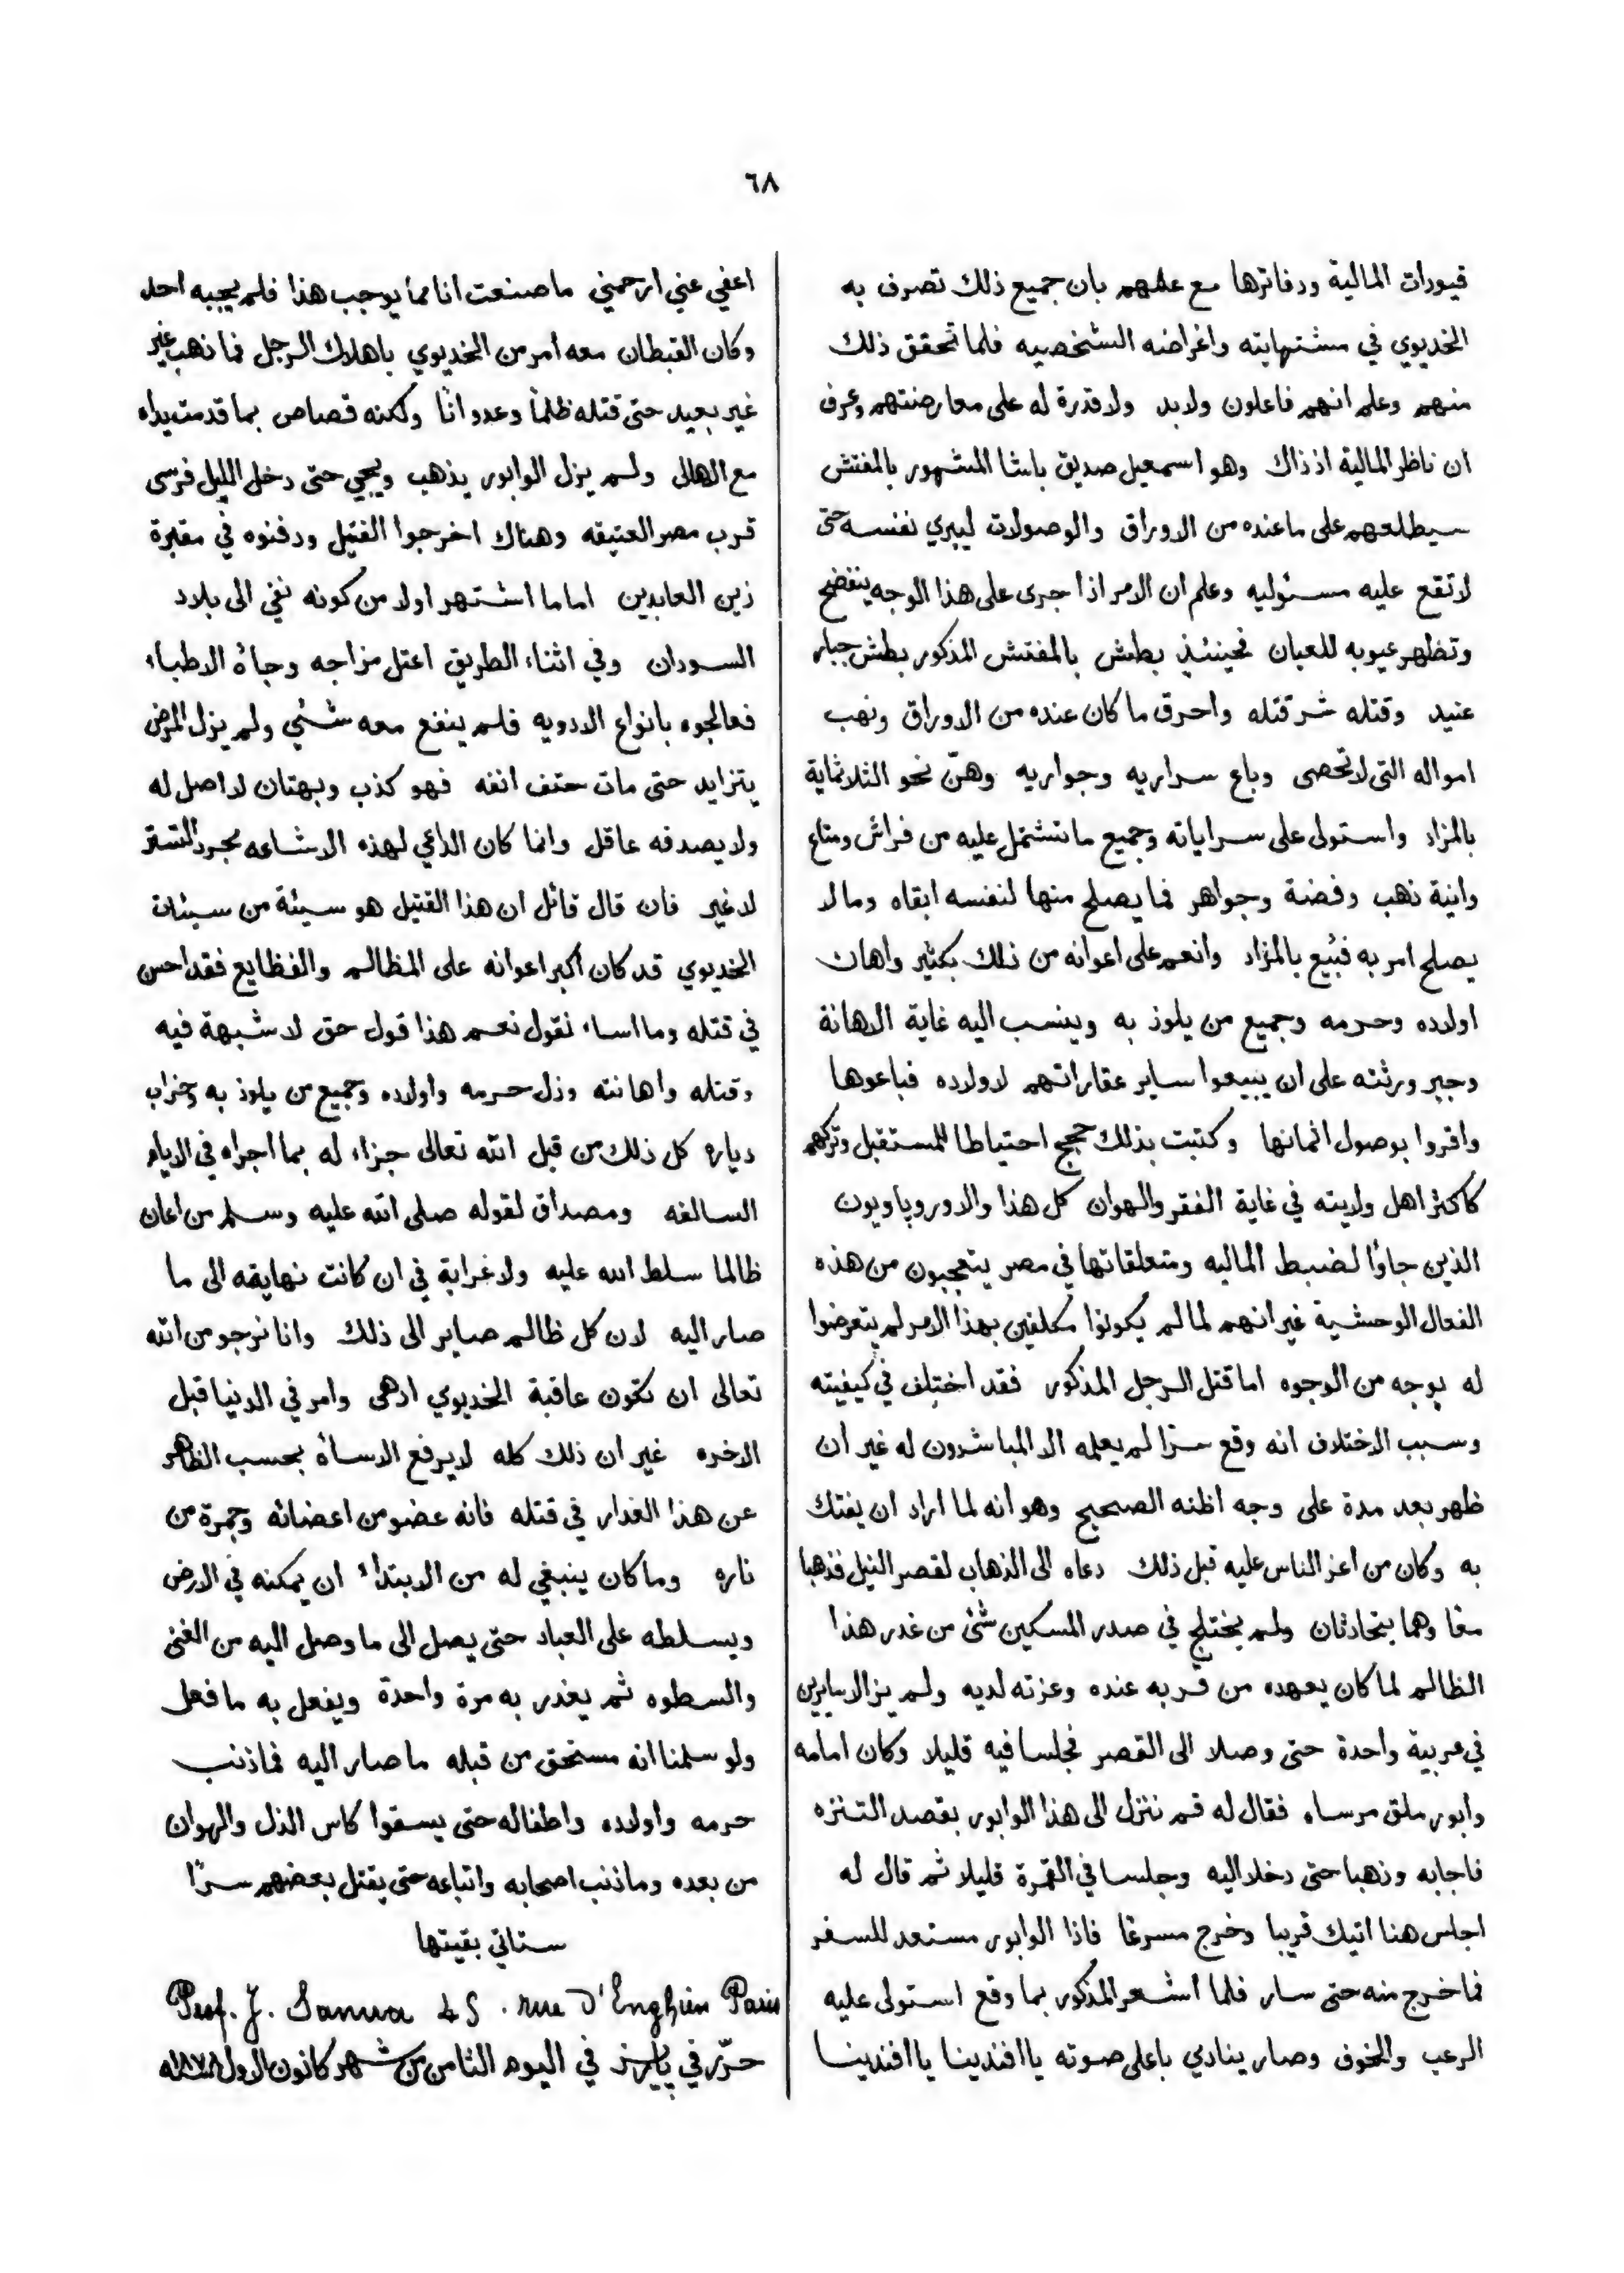 ٦٨
قيورات المالية ودفاترها مع علمهم بان جميع ذلك تصرف به
الخديوي في مشتهايته واغراضه الشخصيه فلما تحقق ذلك
منهم وعلم انهم فاعلون ولابد ولا قدرة له على معارضتهم وعرف
ان ناظر المالية اذ ذاك وهو اسمعيل صديق باشا المشهور بالمفتش
سيطلعهم على ما عنده من الاوراق والوصولات ليبري نفسه حتى
لا تقع عليه مسئوليه وعلم ان الامر اذا جرى على هذا الوجه ينفضح
وتظهر عيوبه للعيان فحينئذ بطش بالمفتش المذكور بطش جبار
عنيد وقتله شر قتله واحرق ما كان عنده من الاوراق ونهب
امواله التى لا تحصى وباع سراريه وجواريه وهنّ نحو الثلاثماية
بالمزاد واستولى على سراياته وجميع ما تشتمل عليه من فراش ومتاع
وانية ذهب وفضة وجواهر فما يصلح منها لنفسه ابقاه وما لا
يصلح امر به فبيع بالمزاد وانعم على اعوانه من ذلك بكثير واهان
اولاده وحرمه وجميع من يلوذ به وينسب اليه غاية الاهانة
وجبر ورثته على ان يبيعوا ساير عقاراتهم لاولاده فباعوها
واقروا بوصول اثمانها وكتبت بذلك حجج احتياطا للمستقبل وتركهم
كاكثر اهل ولايته في غاية الفقر والهوان كل هذا والاوروپاويون
الذين جاؤا لضبط الماليه ومتعلقاتها في مصر يتعجبون من هذه
الفعال الوحشية غير انهم لما لم يكونوا مكلفين بهذا الامر لم يتعرضوا
له بوجه من الوجوه اما قتل الرجل المذكور فقد اختلف في كيفيته
وسبب الاختلاف انه وقع سرّا لم يعلمه الا المباشرون له غير ان
ظهر بعد مدة على وجه اظنه الصحيح وهو انه لما اراد ان يفتك
به وكان من اعز الناس عليه قبل ذلك دعاه الى الذهاب لقصر النيل فذهبا
معًا وهما يتحادثان ولم يختلج في صدر المسكين شئ من غدر هذا
الظالم لما كان يعهده من قربه عنده وعزته لديه ولم يزالا سايرين
في عربية واحدة حتى وصلا الى القصر فجلسا فيه قليلا وكان امامه
وابور ملق مرساه فقال له قم ننزل الى هذا الوابور بقصد التنزه
فاجابه وذهبا حتى دخلا اليه وجلسا في القمرة قليلا ثم قال له
اجلس هنا اتيك قريبا وخرج مسرعًا فاذا الوابور مستعد للسفر
فما خرج منه حتى سار فلما استشعر المذكور بما وقع استولى عليه
الرعب والخوف وصار ينادي باعلى صوته يا افندينا يا افندينا
اعفي عني ارحمني ما صنعت انا مما يوجب هذا فلم يجيبه احد
وكان القبطان معه امر من الخديوي باهلاك الرجل فما ذهب غير
غير بعيد حتى قتله ظلمًا وعدوانًا ولكنه قصاص بما قدمت يداه
مع الاهالى ولم يزل الوابور يذهب ويجي حتى دخل الليل فرسى
قرب مصر العتيقه وهناك اخرجوا القتيل ودفنوه في مقبرة
زين العابدين اما ما اشتهر اولا من كونه نفي الى بلاد
السودان وفي اثناء الطريق اعتل مزاجه وجاءة الاطباء
فعالجوه بانواع الادويه فلم ينفع معه شئي ولم يزل المرض
يتزايد حتى مات حتف انفه فهو كذب وبهتان لا اصل له
ولا يصدقه عاقل وانما كان الداعي لهذه الاشاعه مجرد التستر
لا غير فان قال قائل ان هذا القتيل هو سيئة من سيئات
الخديوي قد كان اكبر اعوانه على المظالم والفظايع فقد احسن
في قتله وما اساء نقول نعم هذا قول حق لا شبهة فيه
وقتله واهانته وذل حرمه واولاده وجميع من يلوذ به وخراب
دياره كل ذلك من قبل الله تعالى جزاء له بما اجراه في الايام
السالفه ومصداق لقوله صلى الله عليه وسلم من اعان
ظالما سلط الله عليه ولا غرابة في ان كانت نهايته الى ما
صار اليه لان كل ظالم صاير الى ذلك وانا نرجو من الله
تعالى ان تكون عاقبة الخديوي ادهى وامر في الدنيا قبل
الاخره غير ان ذلك كله لا يرفع الاساة بحسب الظاهر
عن هذا الغدار في قتله فانه عضو من اعضائه وجمرة من
ناره وما كان ينبغي له من الابتداء ان يمكنه في الارض
ويسلطه على العباد حتى يصل الى ما وصل اليه من الغنى
والسطوه ثم يغدر به مرة واحدة ويفعل به ما فعل
ولو سلمنا انه مستحق من قبله ما صار اليه فما ذنب
حرمه واولاده واطفاله حتى يسقوا كاس الذل والهوان
من بعده وما ذنب اصحابه واتباعه حتى يقتل بعضهم سرًا
ستاتي بقيتها
Prof. J. Sanua 45. rue d'Enghien Paris
حرّر في پاريز في اليوم الثامن من شهر كانون الاول ١٨٧٨